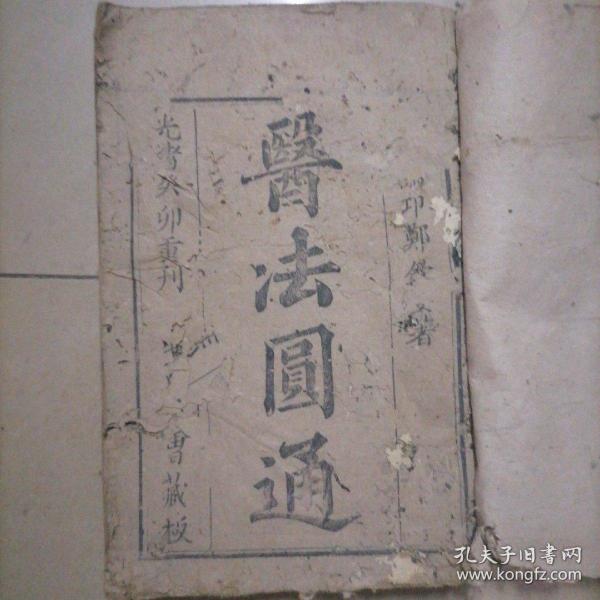 邛鄭欽安著
醫法圓通
光緒癸卯重刊
會藏板
孔夫子旧书网
www.kongfz.com